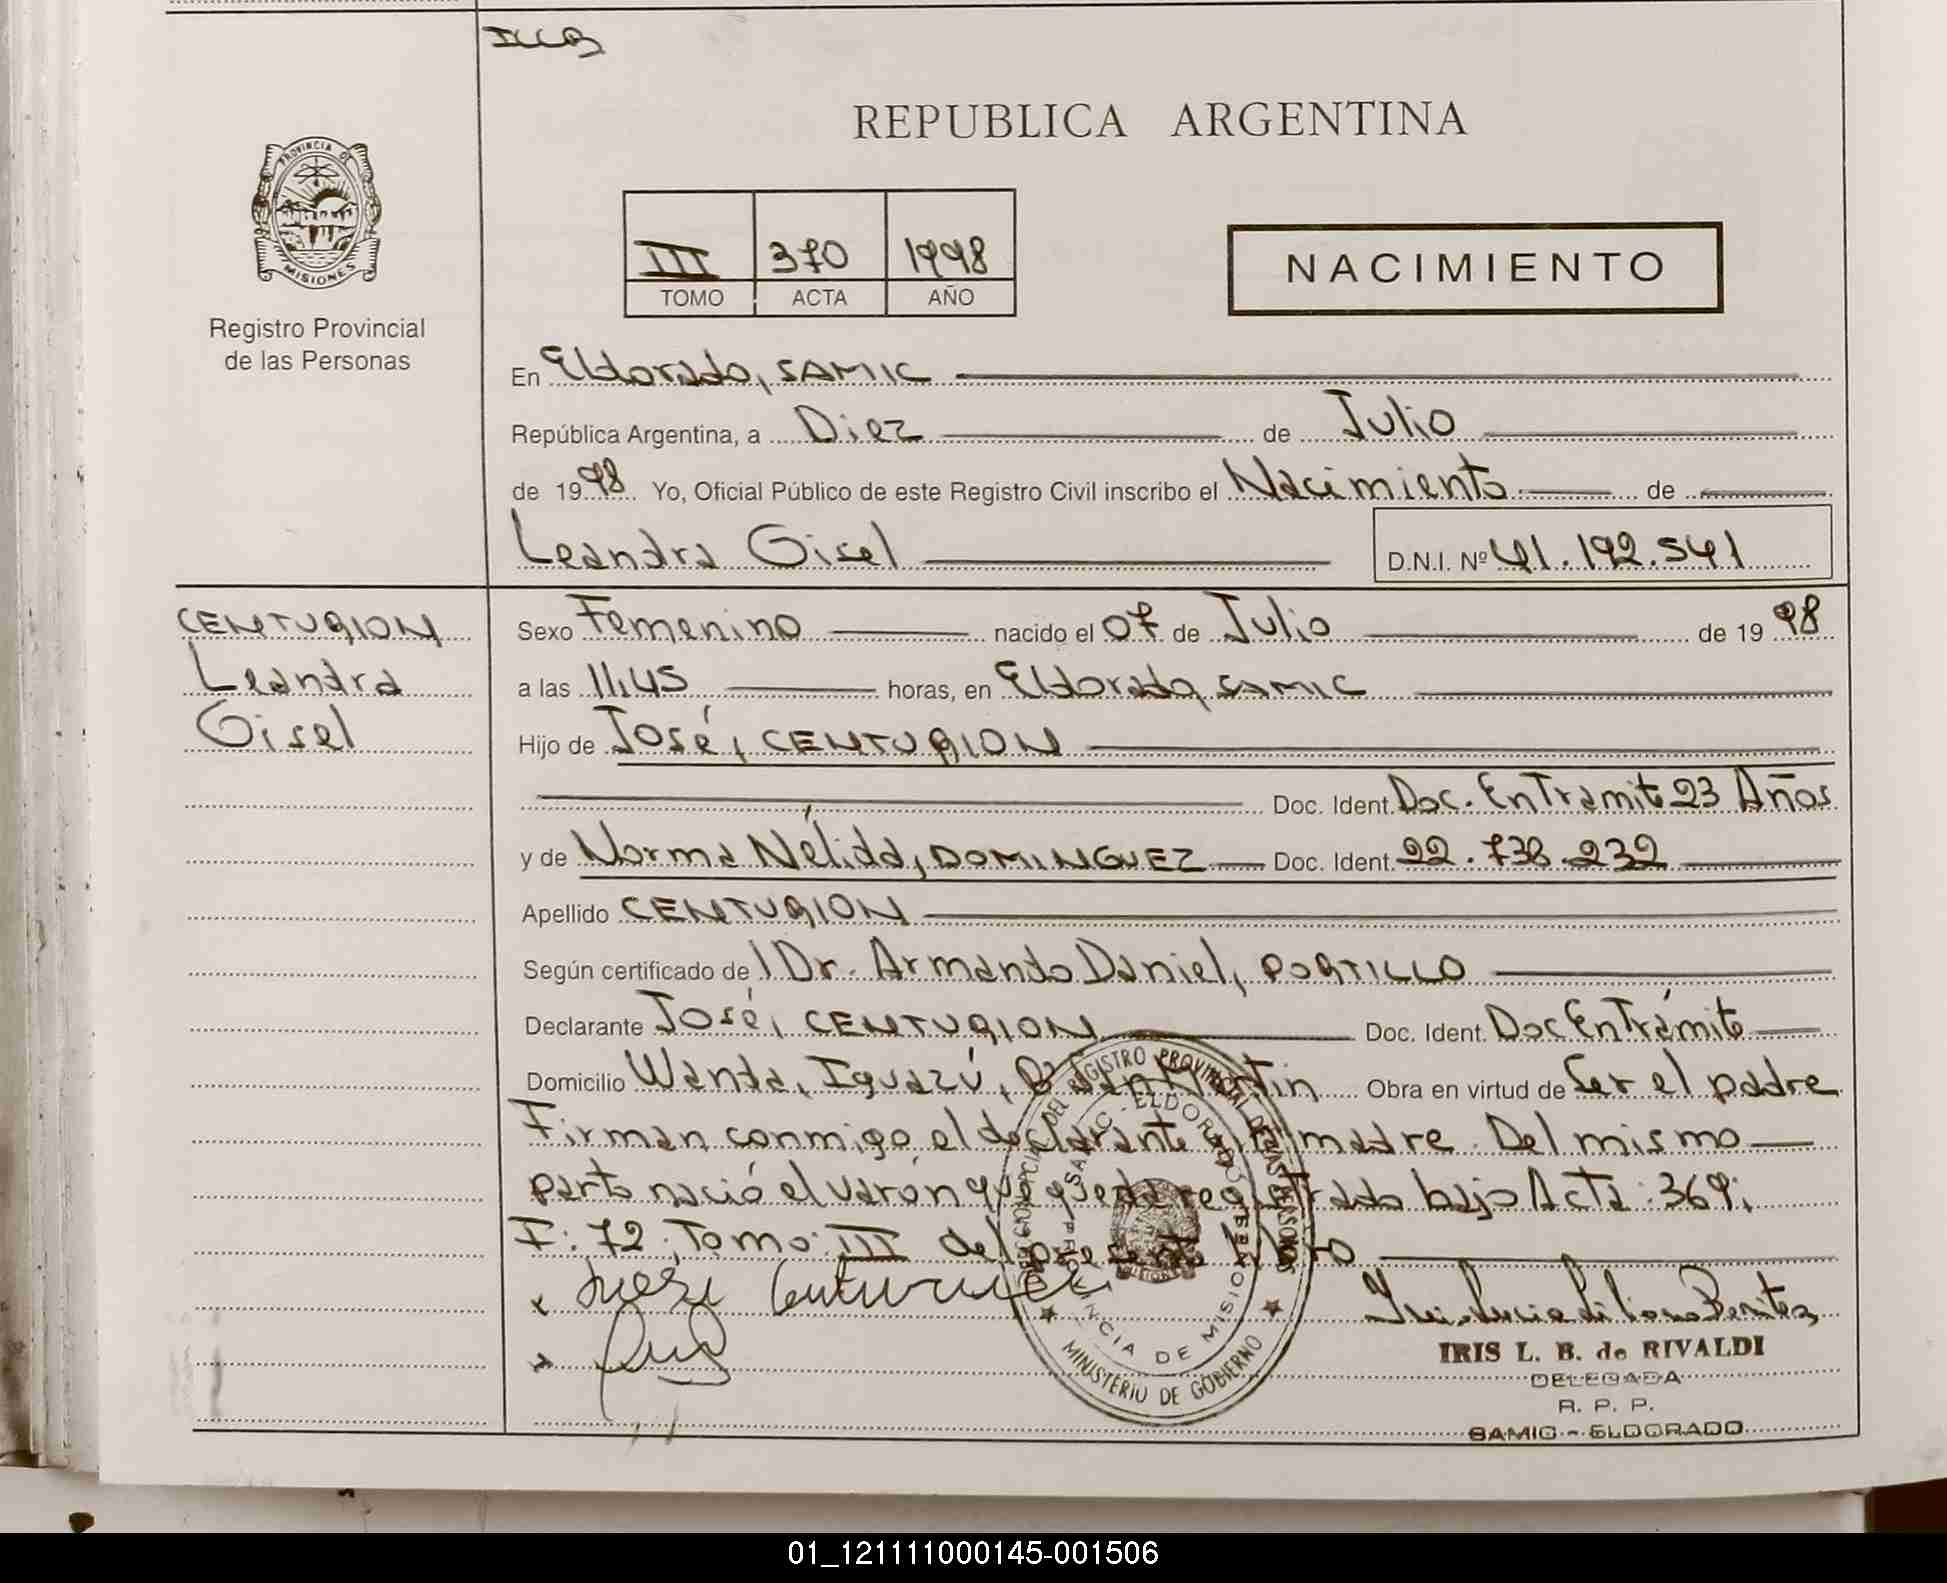 REPUBLICA ARGENTINA
PROVINCIA DE
MISIONES
Registro Provincial
de las Personas
III 370 1998
TOMO ACTA AÑO
NACIMIENTO
En Eldorado, SAMIC
República Argentina, a Diez de Julio
de 1998 Yo, Oficial Público de este Registro Civil inscribo el Nacimiento de
Leandra Gisel D.N.I. Nº 41.192.541
CENTURION
Leandra
Gisel
Sexo Femenino nacido el 07 de Julio de 1998
a las 11,45 horas, en Eldorado, SAMIC
Hijo de José, CENTURION
Doc. Ident. Doc. EnTramite 23 Años
y de Norma Nélida, DOMINGUEZ Doc. Ident. 22.738.232
Apellido CENTURION
Según certificado de l Dr. Armando Daniel, PORTILLO
Declarante José, CENTURION Doc. Ident. Doc EnTrámite
Domicilio Wanda, Iguazú, Bº San Martin Obra en virtud de Ser el padre
Firman conmigo el declarante y la madre. Del mismo
parto nació el varón que queda registrado bajo Acta: 369;
F: 72; Tomo: III del presente libro
REGISTRO PROVINCIAL DE LAS PERSONAS
SAMIC - ELDORADO
PROVINCIA DE MISIONES
MINISTERIO DE GOBIERNO
IRIS L. B. de RIVALDI
DELEGADA
R. P. P.
SAMIC - ELDORADO
01_121111000145-001506